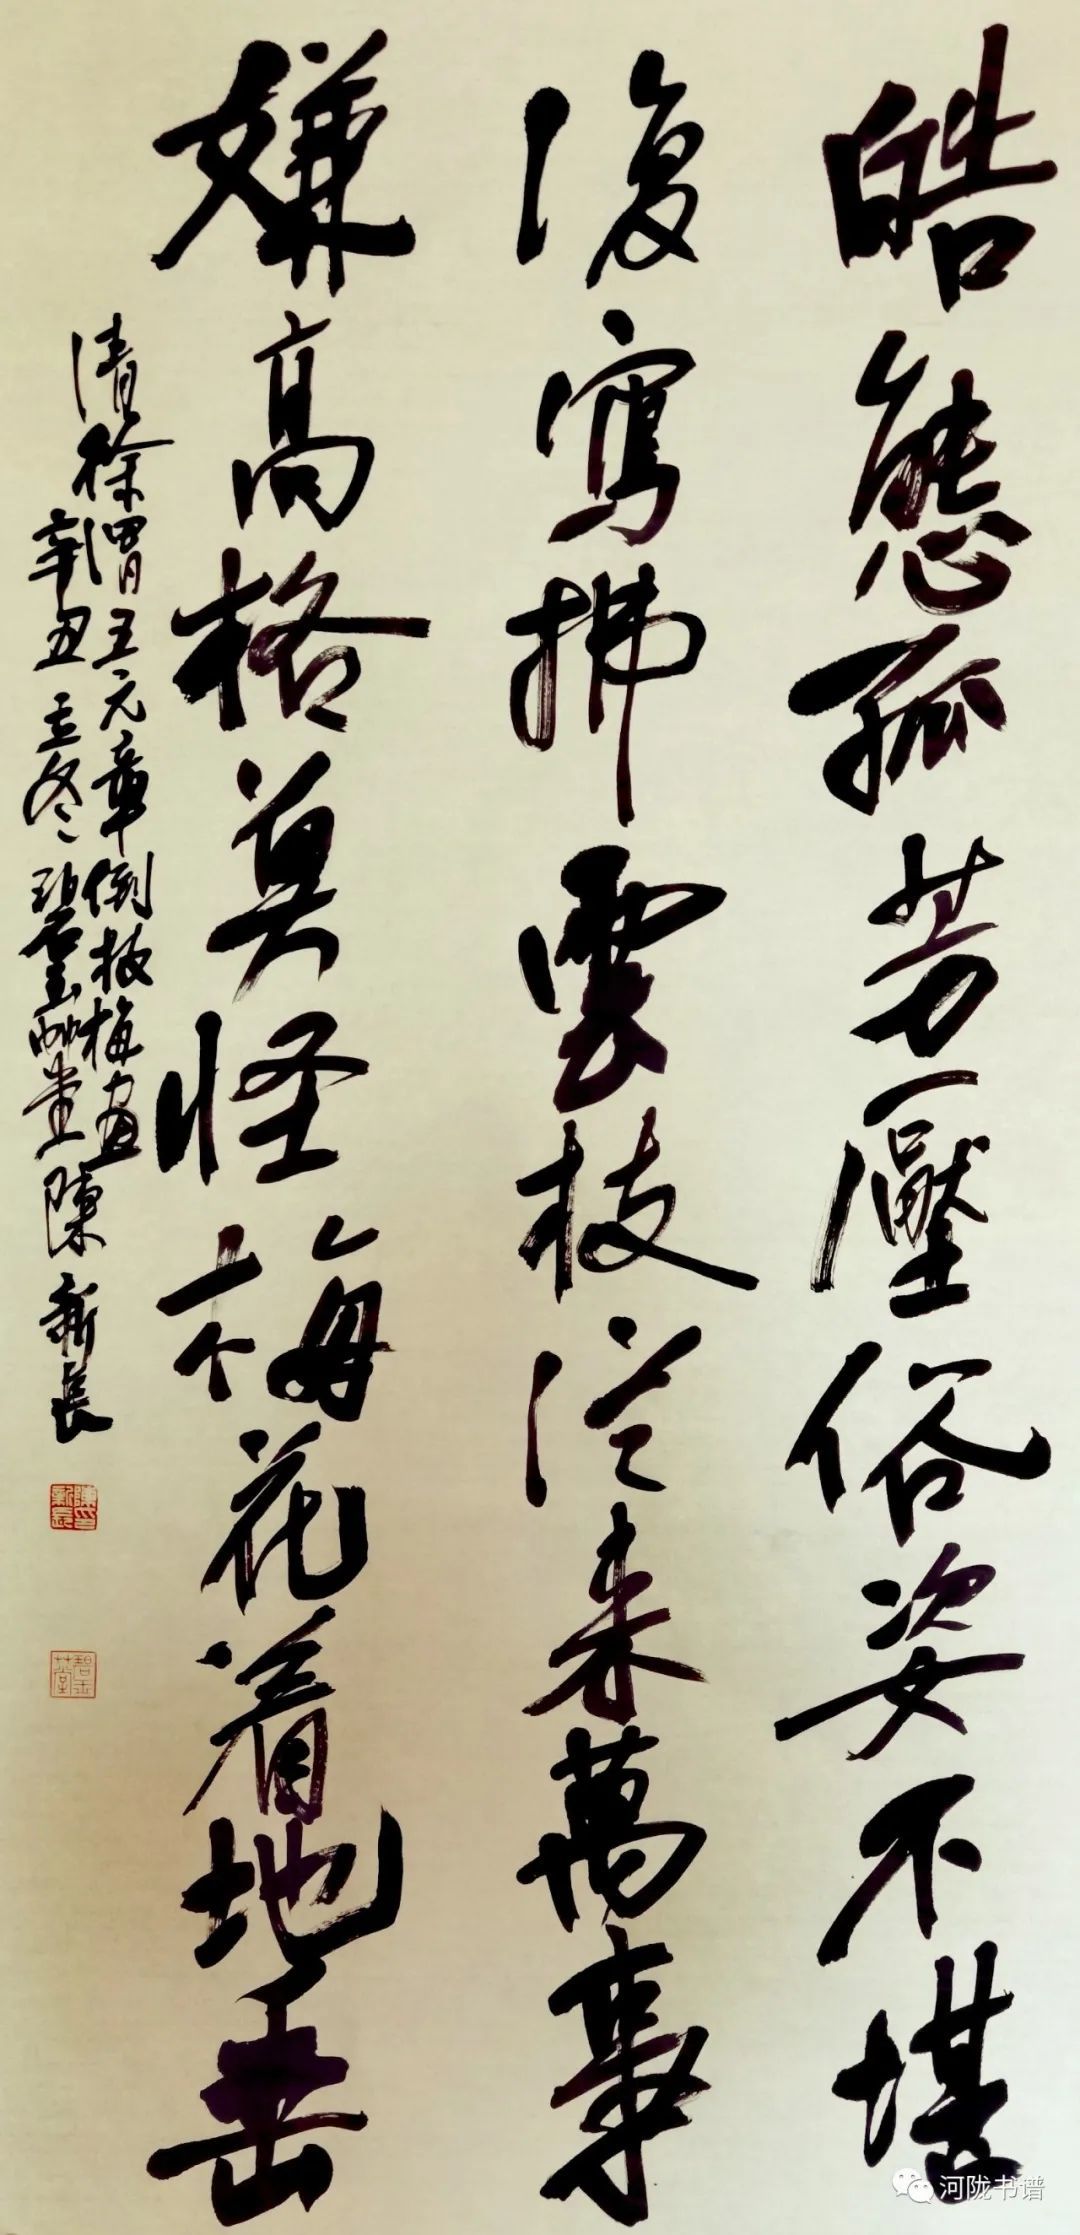 皓態孤芳壓俗姿不堪
復寫拂雲枝從来萬事
嫌高格莫怪梅花着地垂
清徐渭王元章倒枝梅畫
辛丑孟冬碧玉艸堂陳新長
陳新長印
碧玉艸堂
河陇书谱